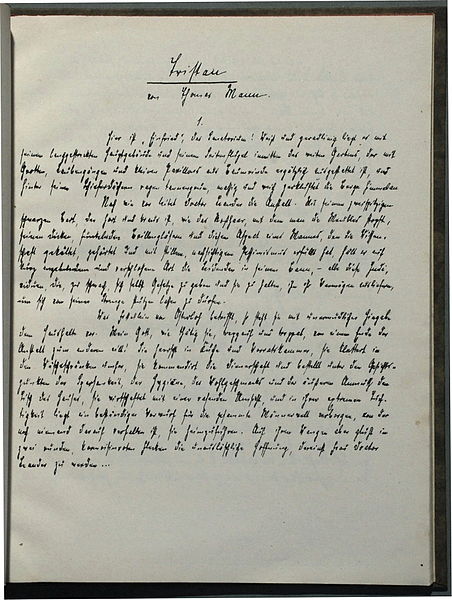 Tristan
von Thomas Mann.
1.
Hier ist „Einfried“, das Sanatorium! Weiß und geradlinig liegt es mit
seinem langgestreckten Hauptgebäude und seinem Seitenflügel inmitten des weiten Gartens, der mit
Grotten, Laubengängen und kleinen Pavillons aus Baumrinde ergötzlich ausgestattet ist, und
hinter seinen Schieferdächern ragen tannengrün, massig und weich zerklüftet die Berge himmelan.
Nach wie vor leitet Doctor Leander die Anstalt. Mit seinem zweispitzigen
schwarzen Bart, der hart und kraus ist, wie das Roßhaar, mit dem man die Meubles stopft,
seinen dicken, funkelnden Brillengläsern und diesem Aspekt eines Mannes, den die Wissen-
schaft gekältet, gehärtet und mit stillem, nachsichtigem Pessimismus erfüllt hat, hält er auf
kurz angebundene und verschlossene Art die Leidenden in seinem Bann, – alle diese Indi-
viduen, die, zu schwach, sich selbst Gesetze zu geben und sie zu halten, ihm ihr Vermögen ausliefern,
um sich von seiner Strenge stützen lassen zu dürfen.
Was Fräulein von Osterloh betrifft, so steht sie mit unermüdlicher Hingabe
dem Haushalte vor. Mein Gott, wie thätig sie, treppauf und treppab, von einem Ende der
Anstalt zum anderen eilt! Sie herrscht in Küche und Vorratskammer, sie klettert in
den Wäscheschränken umher, sie kommandirt die Dienerschaft und bestellt unter den Gesichts-
punkten der Sparsamkeit, der Hygiene, des Wohlgeschmacks und der äußeren Anmuth den
Tisch des Hauses, sie wirthschaftet mit einer rasenden Umsicht, und in ihrer extremen Tüch-
tigkeit liegt ein beständiger Vorwurf für die gesammte Männerwelt verborgen, von der
noch niemand darauf verfallen ist, sie heimzuführen. Auf ihren Wangen aber glüht in
zwei runden, karmoisinrothen Flecken die unauslöschliche Hoffnung, dereinst Frau Doctor
Leander zu werden ...